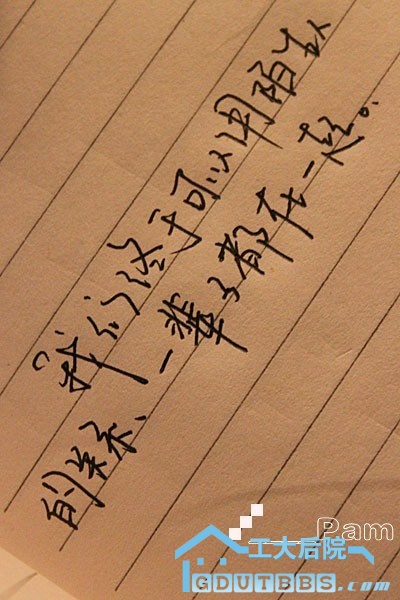 我们终于可以用陌生人
的关系、一辈子都在一起。
Pam
工大后院
GDUTBBS.com